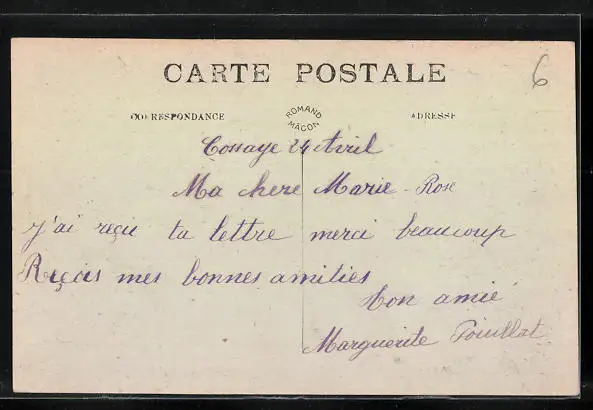 CARTE POSTALE
6
CORRESPONDANCE
ROMAND
MACON
ADRESSE
Cossaye 24 Avril
Ma chere Marie-Rose
j'ai reçu ta lettre merci beaucoup
Reçois mes bonnes amitiés
ton amie
Marguerite Pouillat